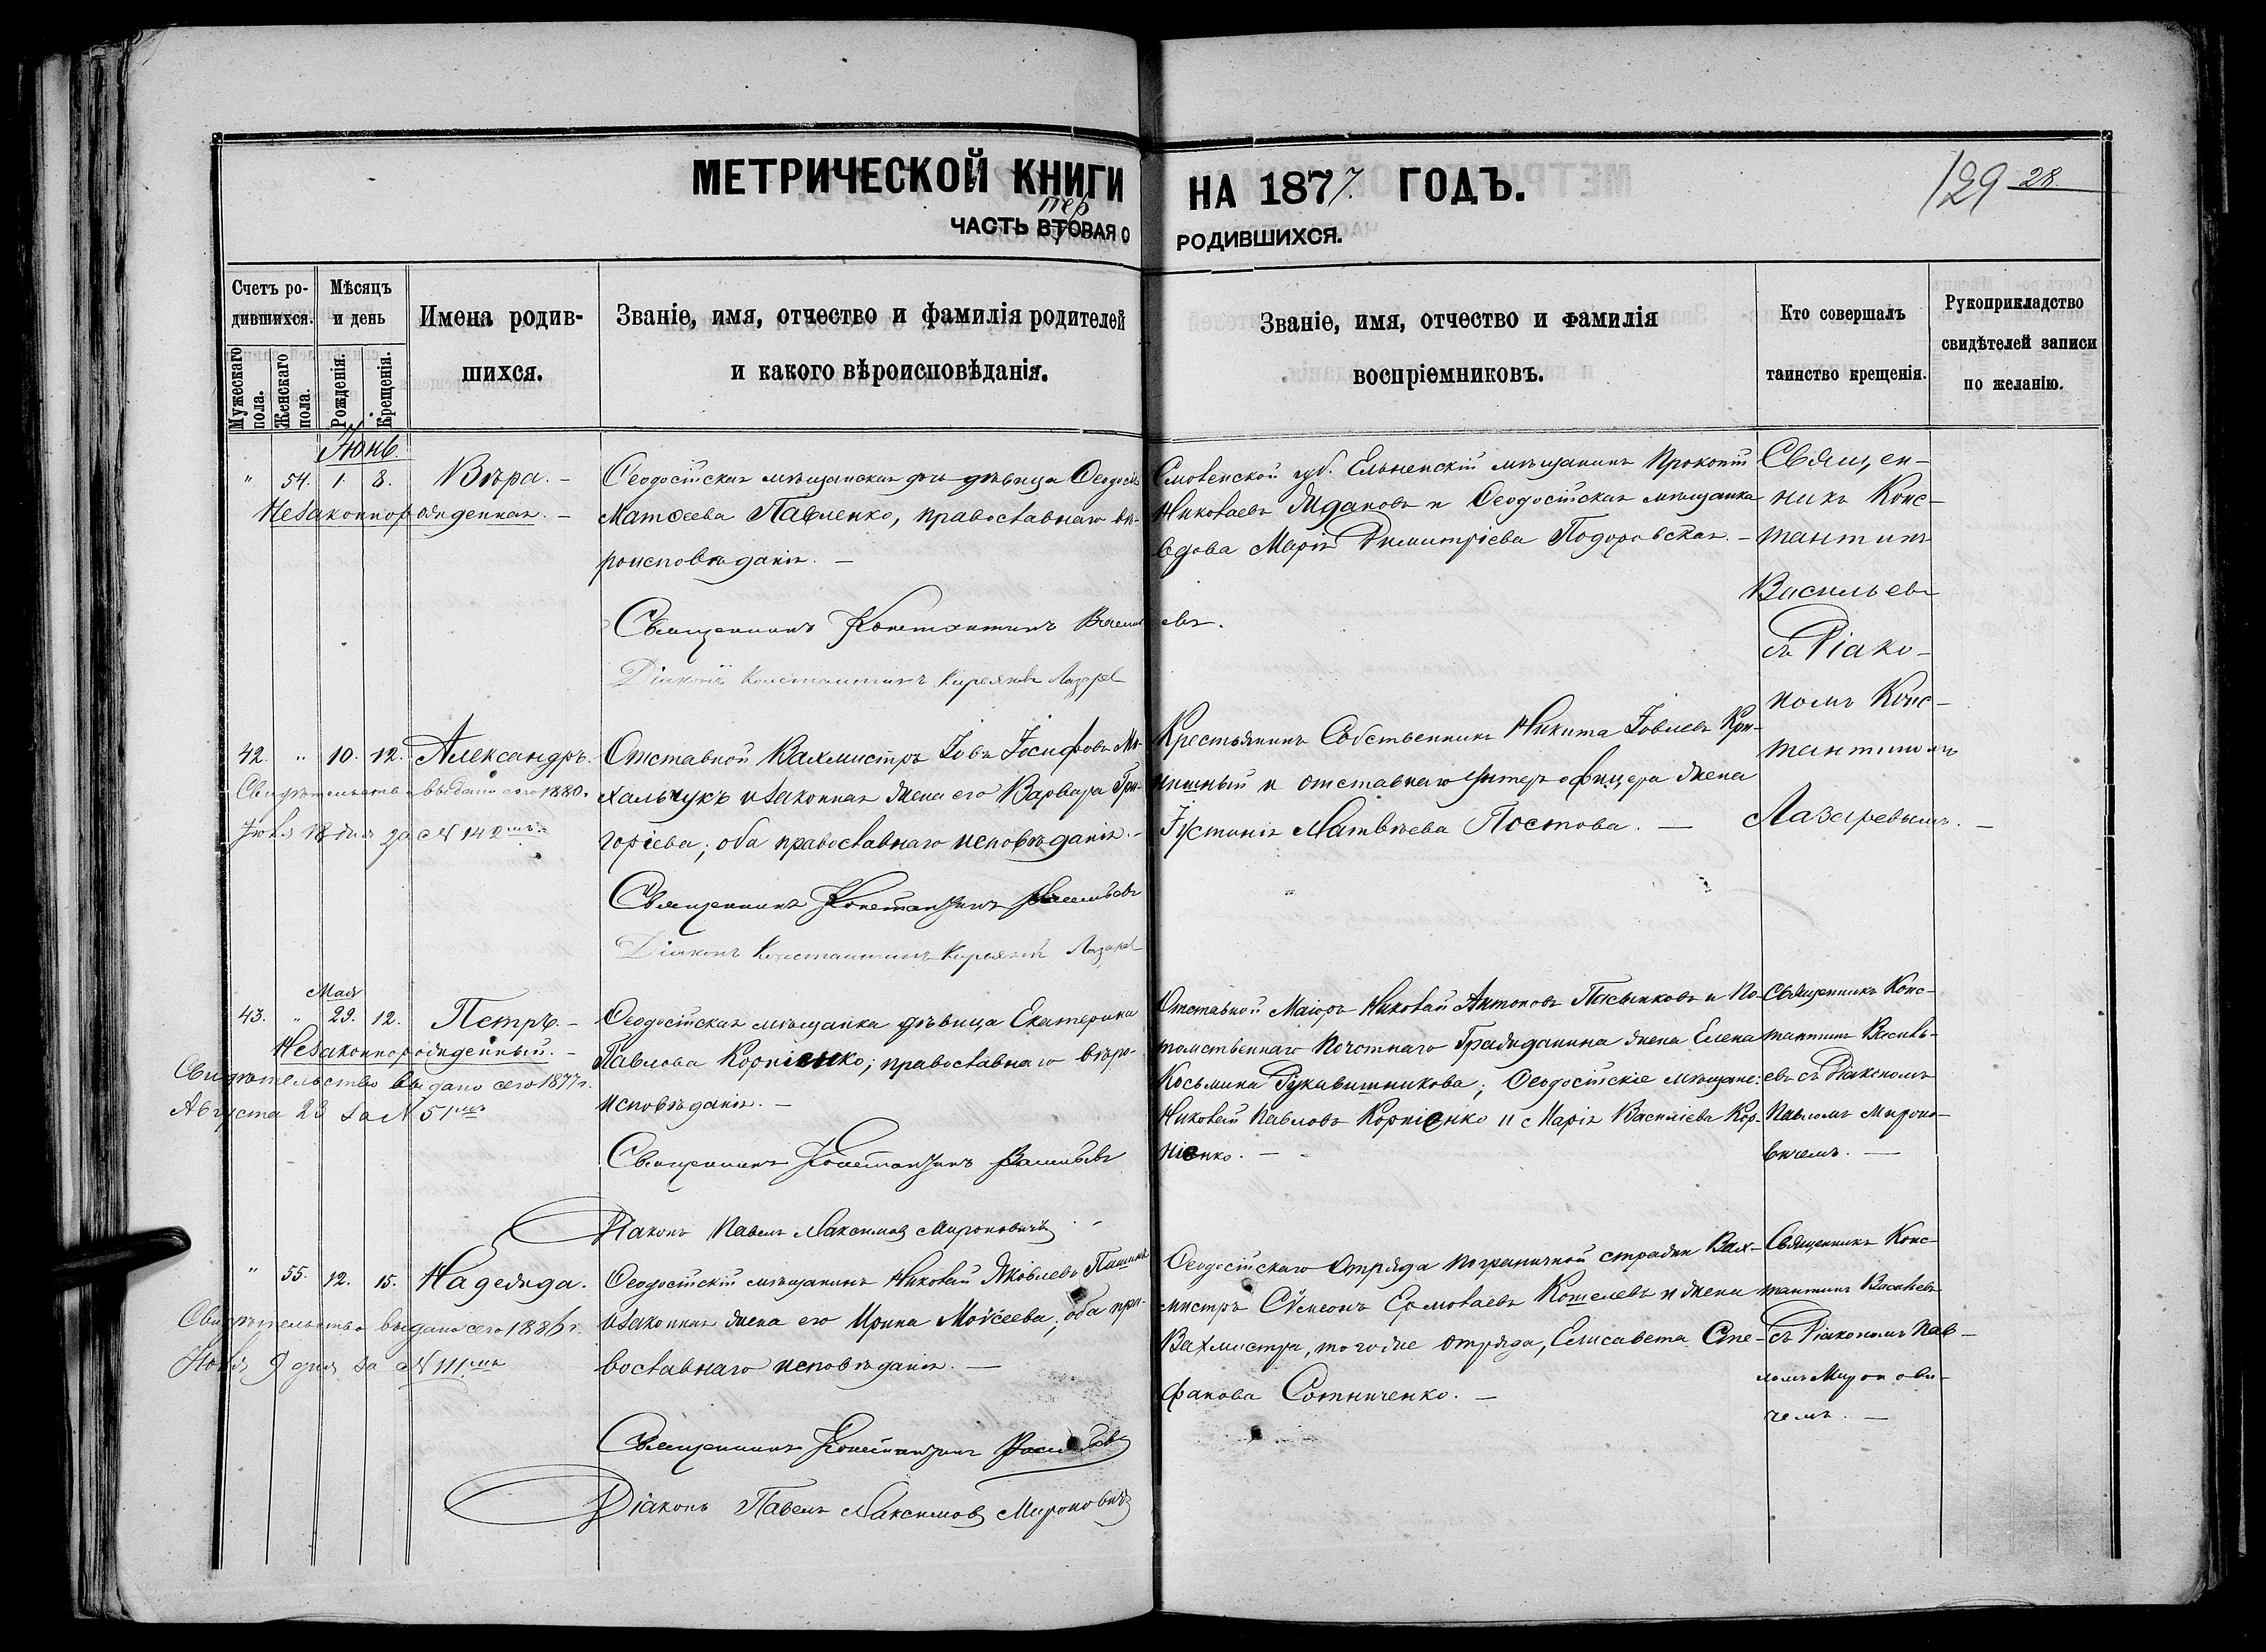 МЕТРИЧЕСКОЙ КНИГИ НА 1877. ГОДЪ.
129 28
пер
ЧАСТЬ ВТОРАЯ О РОДИВШИХСЯ.
Счетъ ро-
дившихся.
Мужескаго пола.
Женскаго пола.
Мѣсяцъ
и день
Рожденія.
Крещенія.
Имена родив-
шихся.
Званіе, имя, отчество и фамилія родителей
и какого вѣроисповѣданія.
Званіе, имя, отчество и фамилія
воспріемниковъ.
Кто совершалъ
таинство крещенія.
Рукоприкладство
свидѣтелей записи
по желанію.
Іюнь.
" 54. 1. 8. Вѣра. –
Незаконнорожденная. –
Ѳеодосійская мѣщанская дочь дѣвица Ѳеодосія
Матѳеева Павленко, православнаго вѣ-
роисповѣданія. –
Священникъ Константинъ Васильевъ.
Діаконъ Константинъ Лазарев
Смоленской губ. Ельненскій мѣщанинъ Прокопій
Николаевъ Ждановъ и Ѳеодосійская мѣщанка
вдова Марія Димитріева Подоровская. –
Священ-
никъ Конс-
тантинъ
Васильевъ
съ Діако-
номъ Конс-
тантиномъ
Лазаревымъ. –
42. " 10. 12. Александръ.
Свидѣтельство выдано сего 1880.
Іюля 18 дня за № 142мъ.
Отставной Вахмистръ Іовъ Іосифовъ Ми-
хальчукъ и законная жена его Варвара Гри-
горіева; оба православнаго исповѣданія. –
Священникъ Константинъ Васильевъ
Діаконъ Константинъ Лазарев
Крестьянинъ Собственникъ Никита Іовлевъ
и отставнаго унтеръ офицера жена
Іустинія Матвѣева Постова. –
Мая
43. " 29. 12. Петръ. –
Незаконнорожденный. –
Свидѣтельство выдано сего 1877 г.
Августа 23 за № 51мъ
Ѳеодосійская мѣщанка дѣвица Екатерина
Павлова Корніенко; православнаго вѣро-
исповѣданія. –
Священникъ Константинъ Васильевъ
Діаконъ Павелъ Максимов Мироновичъ
Отставной Маіоръ Николай Антоновъ Пасынковъ и По-
томственнаго Почотнаго Гражданина жена Елена
Косьмина Рукавишникова; Ѳеодосійскіе мѣщане:
Николай Павловъ Корніенко и Марія Василіева Кор-
ніенко. –
Священникъ Конс-
тантинъ Василь-
евъ съ Діакономъ
Павломъ Мироно-
вичемъ. –
" 55. 12. 15. Надежда.
Свидѣтельство выдано сего 1886 г.
9 дня за № 111мъ
Ѳеодосійскій мѣщанинъ Николай Яковлевъ
и законная жена его Ирина Моѵсеева; оба пра-
вославнаго исповѣданія. –
Священникъ Константинъ Васильевъ
Діаконъ Павелъ Максимов Мироновичъ
Ѳеодосійскаго Отряда пограничной стражи Вах-
мистръ Сѵмеонъ Ермолаевъ Кошелевъ и жена
Вахмистра, того же отряда, Елисавета Сте-
фанова Сотниченко. –
Священникъ Конс-
тантинъ Васильевъ
съ Діакономъ Пав-
ломъ Мирон ови-
чемъ. –